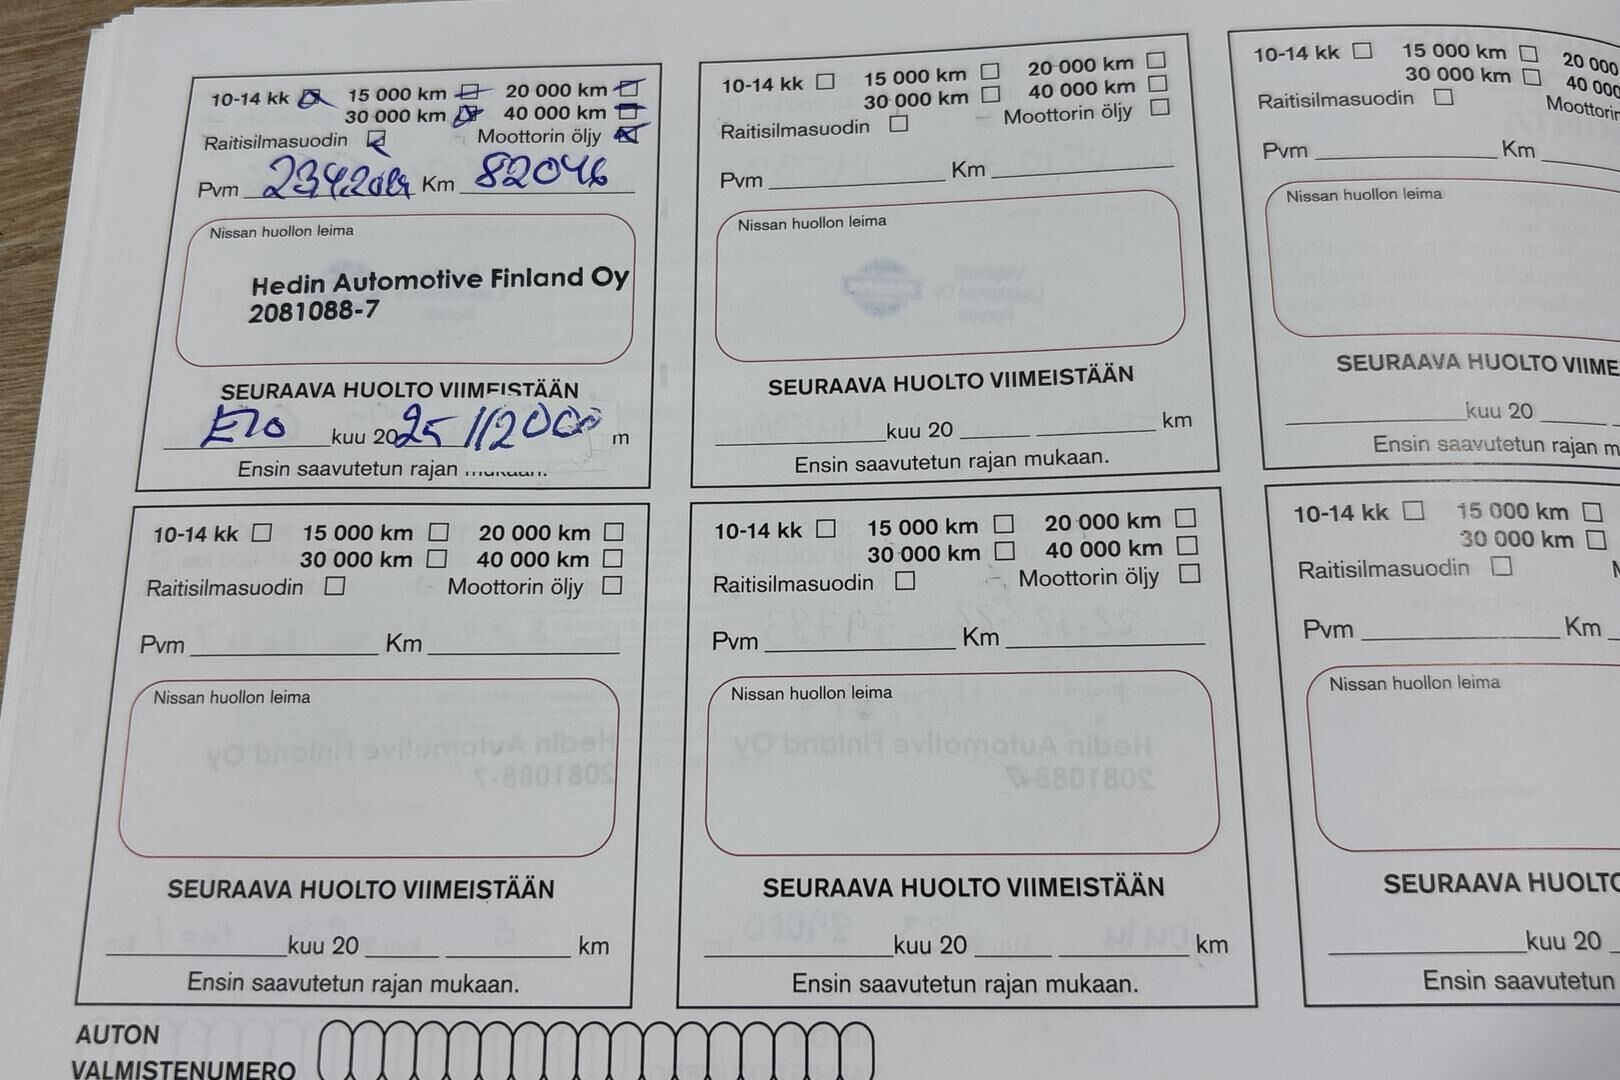 10-14 kk 15 000 km 20 000 km
30 000 km 40 000 km
Raitisilmasuodin Moottorin öljy
Pvm Km 82046
Nissan huollon leima
Hedin Automotive Finland Oy
2081088-7
SEURAAVA HUOLTO VIIMEISTÄÄN
Elo kuu 2025 112000 m
Ensin saavutetun rajan mukaan.
10-14 kk 15 000 km 20 000 km
30 000 km 40 000 km
Raitisilmasuodin Moottorin öljy
Pvm Km
Nissan huollon leima
SEURAAVA HUOLTO VIIMEISTÄÄN
kuu 20 km
Ensin saavutetun rajan mukaan.
10-14 kk 15 000 km 20 000
30 000 km 40 000
Raitisilmasuodin Moottorin
Pvm Km
Nissan huollon leima
SEURAAVA HUOLTO VIIME
kuu 20
Ensin saavutetun rajan m
10-14 kk 15 000 km 20 000 km
30 000 km 40 000 km
Raitisilmasuodin Moottorin öljy
Pvm Km
Nissan huollon leima
SEURAAVA HUOLTO VIIMEISTÄÄN
kuu 20 km
Ensin saavutetun rajan mukaan.
10-14 kk 15 000 km 20 000 km
30 000 km 40 000 km
Raitisilmasuodin Moottorin öljy
Pvm Km
Nissan huollon leima
SEURAAVA HUOLTO VIIMEISTÄÄN
kuu 20 km
Ensin saavutetun rajan mukaan.
10-14 kk 15 000 km
30 000 km
Raitisilmasuodin M
Pvm Km
Nissan huollon leima
SEURAAVA HUOLTO
kuu 20
Ensin saavutetun
AUTON
VALMISTENUMERO